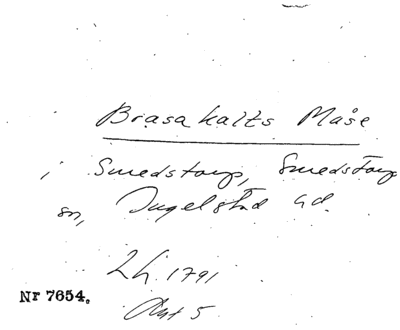 Brasakalts Måse
i Smedstorp, Smedstorp
sn, Ingelstad hd.
Lh. 1791
Akt 5
Nr 7654.